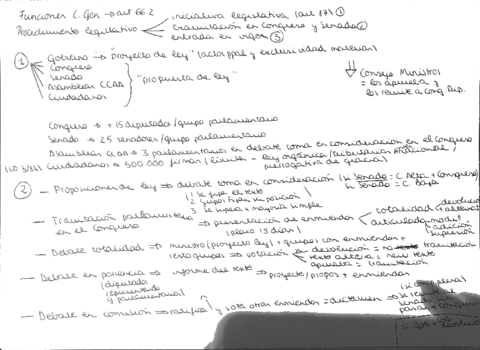 Funciones C. Gen → art 66.2
Procedimiento legislativo
iniciativa legislativa (art 87) ①
tramitación en Congreso y Senado ②
entrada en vigor ③
① Gobierno → "proyecto de ley" (actor ppal y exclusividad materias)
Congreso
Senado
Asambleas CCAA
Ciudadanos
"propuesta de ley"
Consejo Ministros
= los aprueba y
los remite a Cong Dip.
Congreso → + 15 diputados / grupo parlamentario
Senado → 25 senadores / grupo parlamentario
Asambleas CCAA → 3 parlamentarios en debate toma en consideración en el Congreso
(LO 3/84) Ciudadanos → 500.000 firmas (límites = ley orgánica / tributarias / Internacional /
prerrogativa de gracia)
② - Proposiciones de ley ⇒ debate toma en consideración
si Senado: C. Baja
1 se fija el texto
2 grupos fijan su posición
3 se supera x mayoría simple
- Tramitación parlamentaria ⇒ presentación de enmiendas
en el Congreso
(plazo 15 días)
totalidad
articulado
adición
supresión
- Debate totalidad ⇒ ministro (proyecto ley) + grupos con enmiendas +
resto grupos ⇒ votación
devolución = no tramitación
texto altern. = new texto
aprueba = tramitación
- Debate en ponencia ⇒ informe del texto ⇒ proyecto / propos + enmiendas
(diputados
representando
g parlamentarios)
- Debate en comisión ⇒ ratifica y vota otras enmiendas = dictamen ⇒
se remite al
Senado